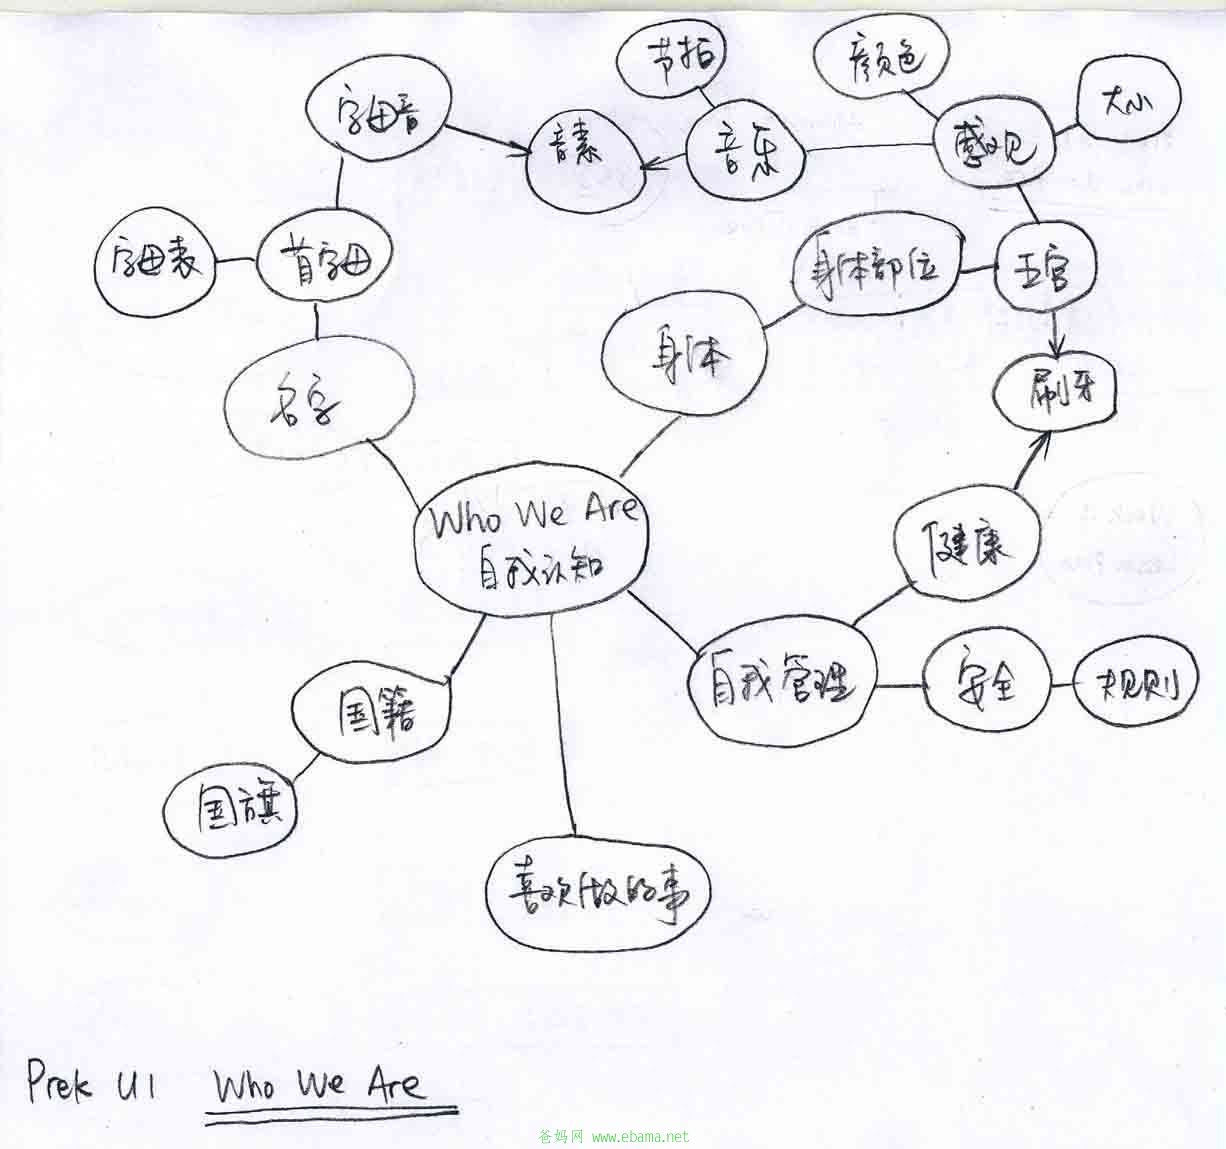 节拍
颜色
大小
字母音
音素
音乐
感观
字母表
首字母
身体部位
五官
身体
刷牙
名字
Who We Are
自我认知
健康
自我管理
安全
规则
国籍
国旗
喜欢做的事
Prek U1 Who We Are
爸妈网 www.ebama.net